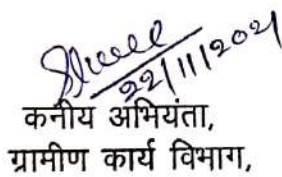 22/11/2021
कनीय अभियंता,
ग्रामीण कार्य विभाग,